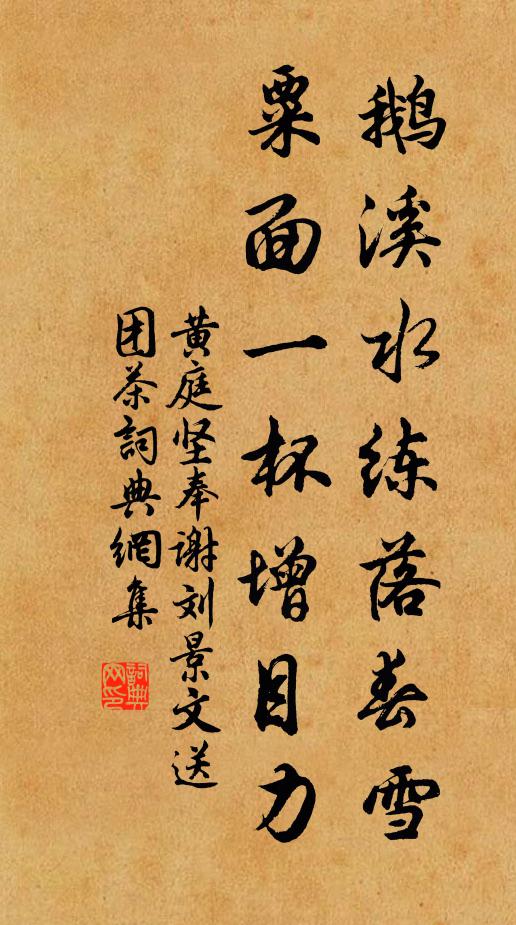 鹅溪水练落春雪
粟面一杯增目力
黄庭坚奉谢刘景文送
团茶詞典網集
詞典网印